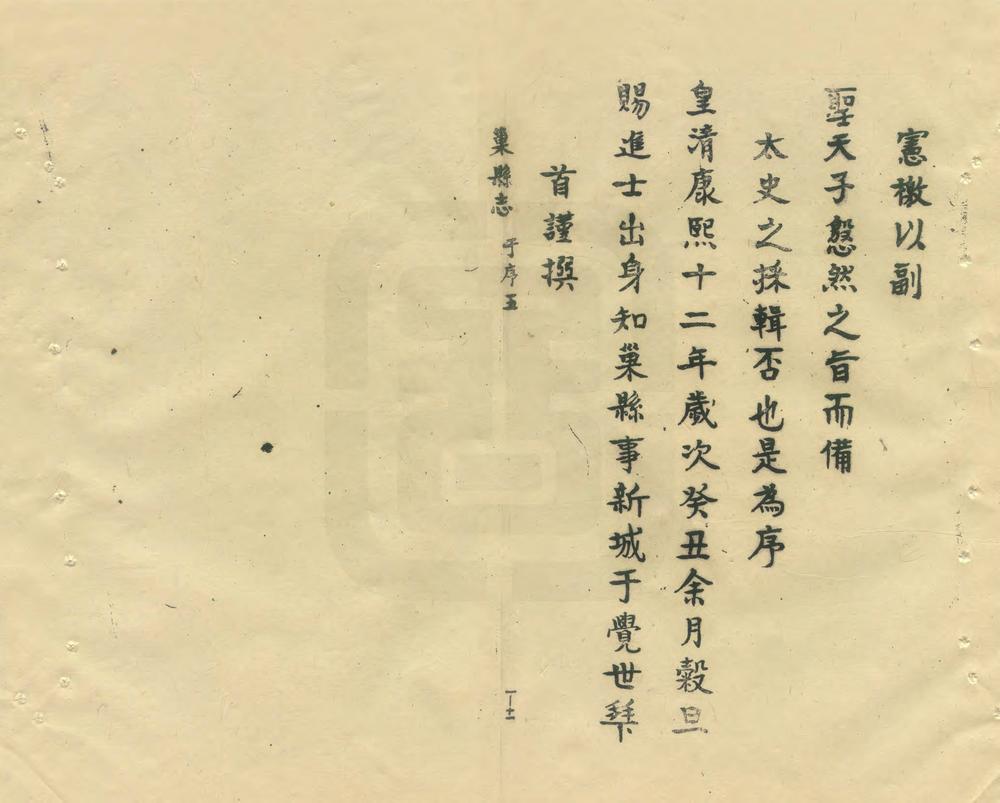 憲檄以副
聖天子慇然之旨而備
太史之採輯否也是為序
皇清康熙十二年歲次癸丑余月穀旦
賜進士出身知巢縣事新城于覺世拜
首謹撰
巢縣志 于序五